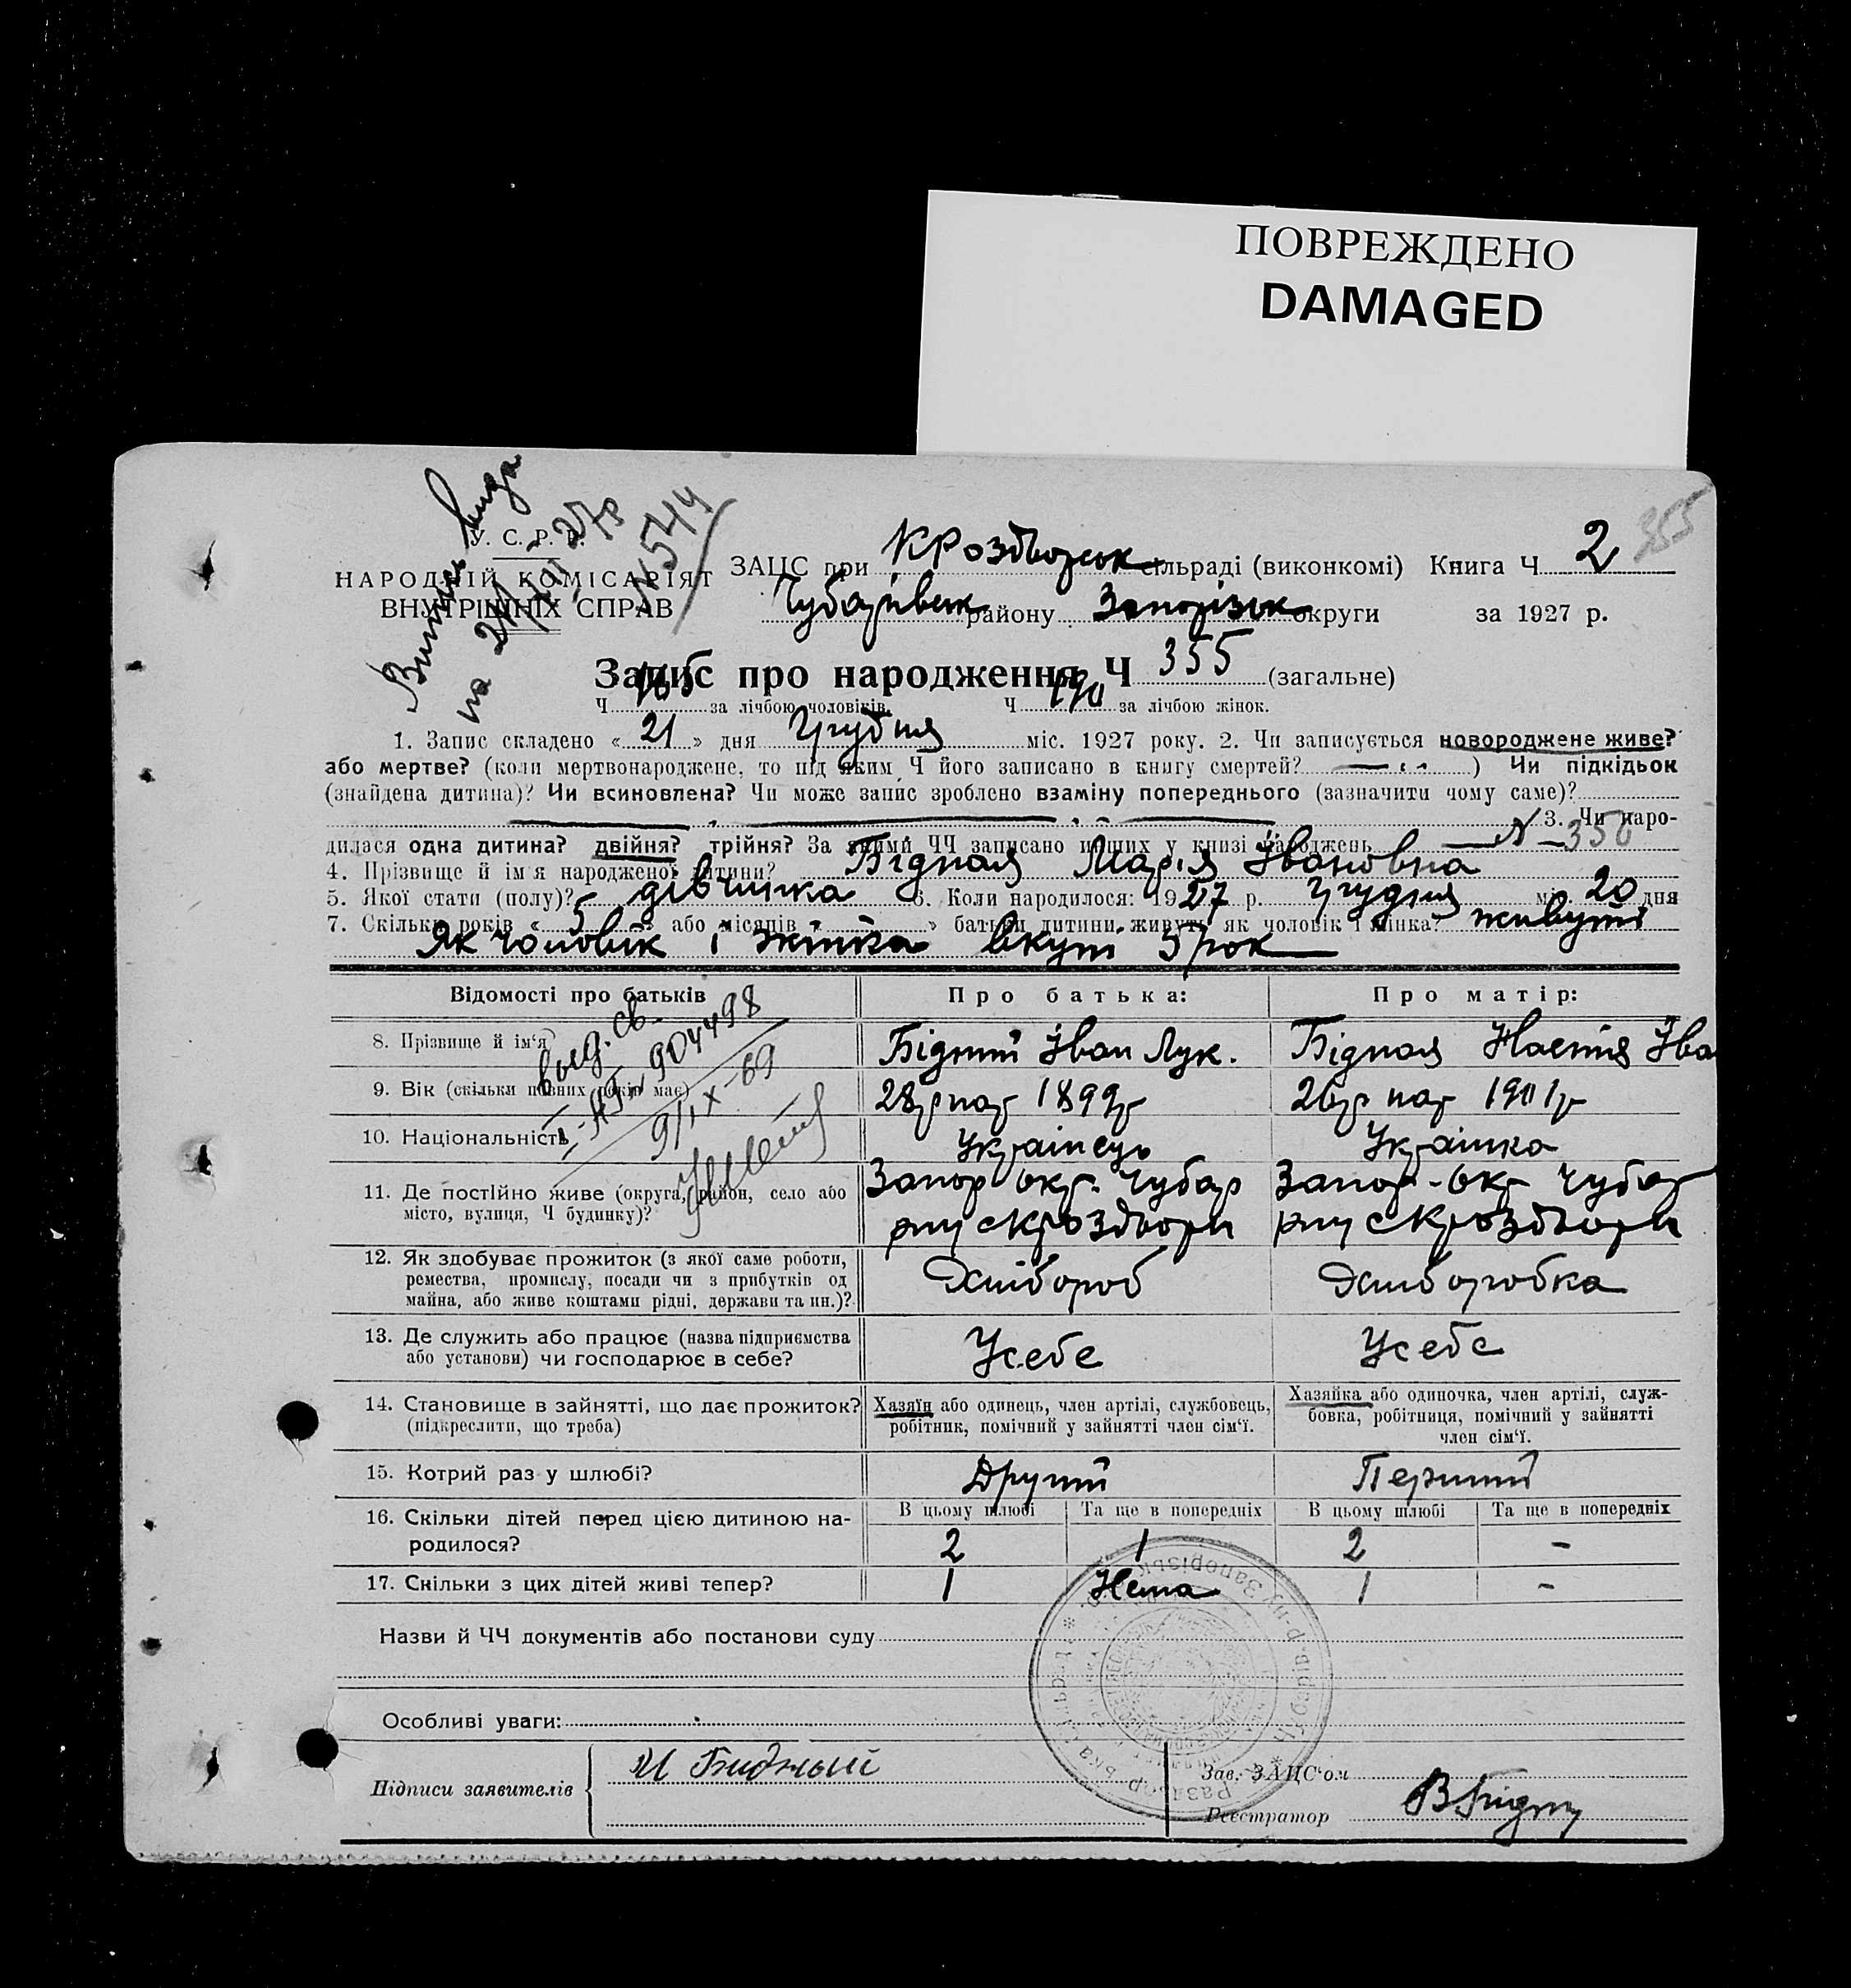 ПОВРЕЖДЕНО
DAMAGED
355
У. С. Р. Р.
НАРОДНІЙ КОМІСАРІЯТ
ВНУТРІШНІХ СПРАВ
№ 544
ЗАЦС при КРоздорськ сільраді (виконкомі) Книга Ч. 2
Чубарівськ району Запорізьк округи за 1927 р.
Запис про народження Ч 355 (загальне)
Ч. 165 за лічбою чоловіків. Ч. 190 за лічбою жінок.
1. Запис складено « 21 » дня Грудня міс. 1927 року. 2. Чи записується новороджене живе?
або мертве? (коли мертвонароджене, то під яким Ч його записано в книгу смертей? ) Чи підкідьок
(знайдена дитина)? Чи всиновлена? Чи може запис зроблено взаміну попереднього (зазначити чому саме)?
3. Чи наро-
дилася одна дитина? двійня? трійня? За якими ЧЧ записано інших у книзі народжень N – 356
4. Прізвище й ім'я народженої дитини? Бідная Марія Івановна
5. Якої стати (полу)? дівчинка 6. Коли народилося: 1927 р. Грудня міс. 20 дня
7. Скільки років « 5 » або місяців « » батьки дитини живуть як чоловік і жінка? живуть
Як чоловік і жінка вкупі 5 рок
Відомості про батьків Про батька: Про матір:
8. Прізвище й ім'я Бідний Іван Лук. Бідная Настя Іва
9. Вік (скільки повних років має) 28 р нар 1899 р 26 р нар 1901 р
10. Національність Українець Українка
11. Де постійно живе (округа, район, село або Запор окр. Чубар Запор-окр Чубар
місто, вулиця, Ч будинку)? рну с КРоздори рну с КРоздори
выд. св.
904498
9/IX-69
12. Як здобуває прожиток (з якої саме роботи, Хлібороб Хліборобка
ремества, промислу, посади чи з прибутків од
майна, або живе коштами рідні, держави та ин.)?
13. Де служить або працює (назва підприємства Усебе Усебе
або установи) чи господарює в себе?
14. Становище в зайнятті, що дає прожиток? Хазяїн або одинець, член артілі, службовець, Хазяйка або одиночка, член артілі, служ-
(підкреслити, що треба) робітник, помічний у зайнятті член сім'ї. бовка, робітниця, помічний у зайнятті
член сім'ї.
15. Котрий раз у шлюбі? Другий Перший
16. Скільки дітей перед цією дитиною на- В цьому шлюбі Та ще в попередніх В цьому шлюбі Та ще в попередніх
родилося? 2 1 2 -
17. Скільки з цих дітей живі тепер? 1 Нема 1 -
Назви й ЧЧ документів або постанови суду
Особливі уваги:
Підписи заявителів И Бидный
Зав. ЗАЦС'ом
Реєстратор